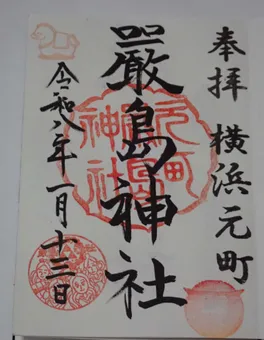 奉拝 横浜元町
嚴島神社
元町
嚴島
神社
令和八年一月十三日